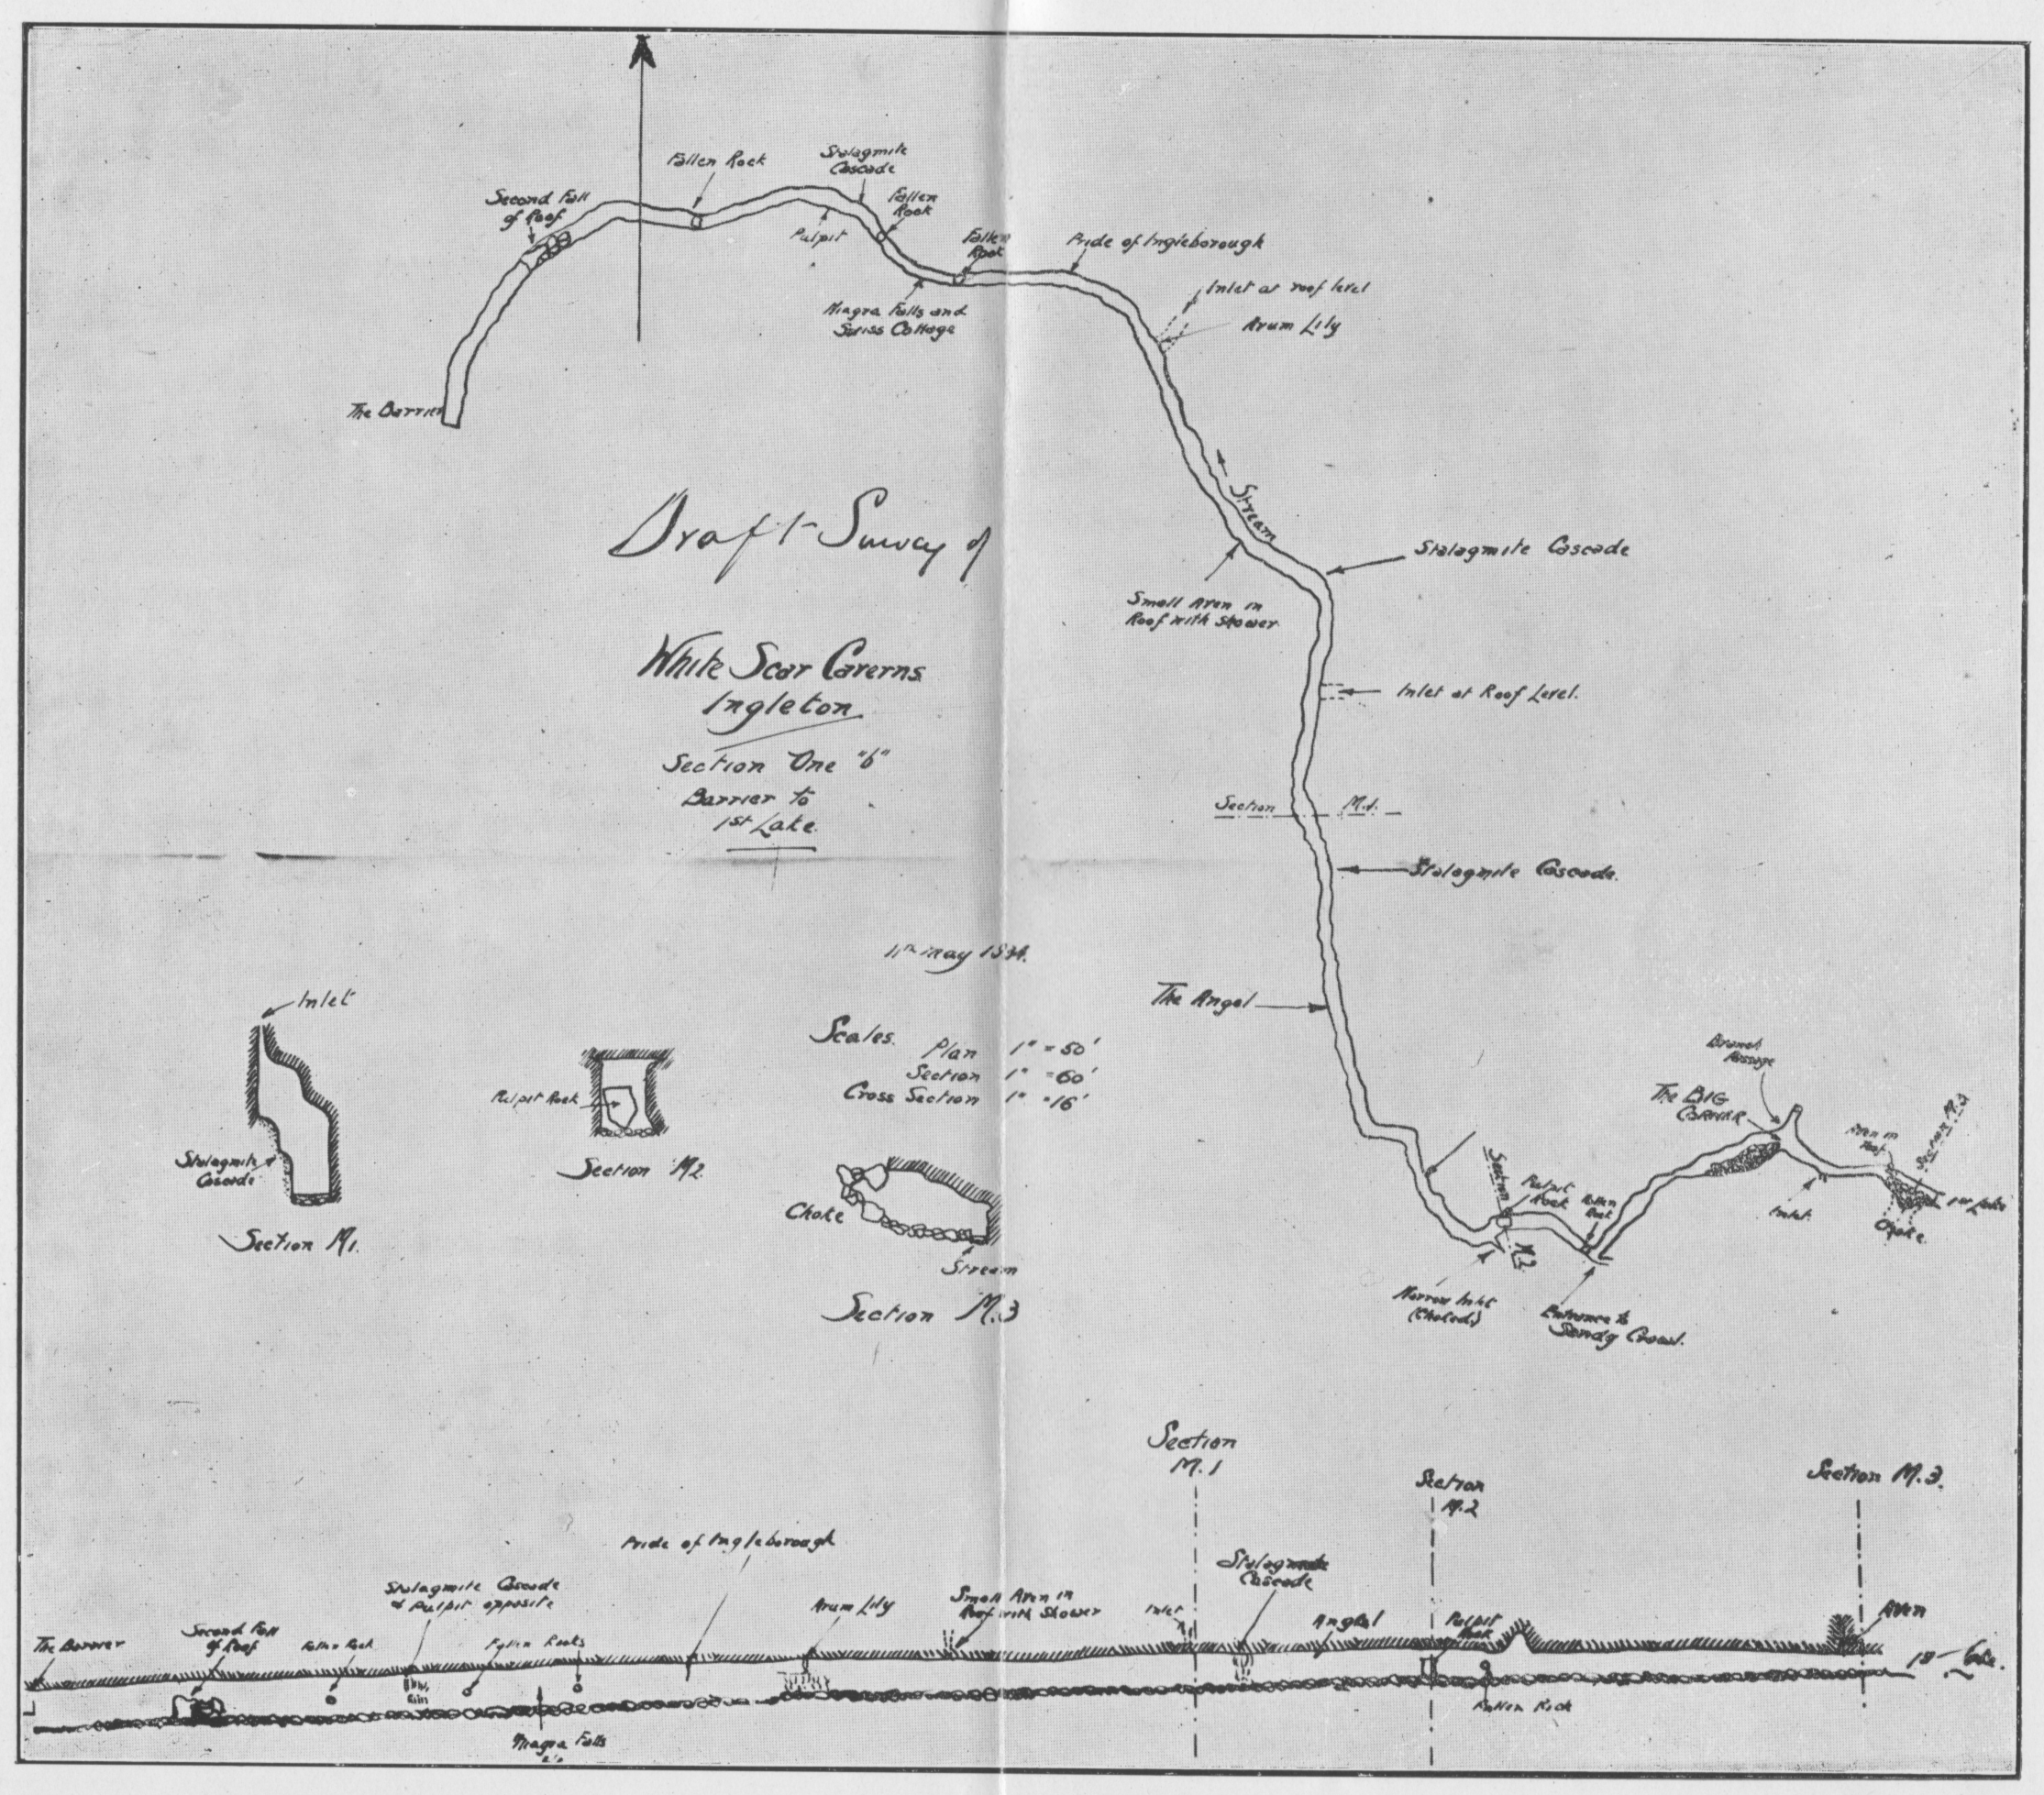 Fallen Rock
Stalagmite
Cascade
Second Fall
of Roof
Fallen
Rock
Pulpit
Fallen
Rock
Pride of Ingleborough
Inlet at roof level
Arum Lily
Niagra Falls and
Swiss Cottage
The Barrier
Stream
Draft Survey of
Stalagmite Cascade
Small Aven in
Roof with Shower
White Scar Caverns
Ingleton
Inlet at Roof Level.
Section One "b"
Barrier to
1st Lake
Section M.1.
Stalagmite Cascade.
11th May
The Angel
Inlet
Scales.
Plan 1" = 50'
Section 1" = 60'
Cross Section 1" = 16'
Branch
Passage
The BIG
CORNER
Aven in
Roof
Section M.3
Pulpit Rock
Section M2
Stalagmite
Cascade
Section M1.
Choke
Stream
Section M.3
Section M.2
Pulpit
Rock
Fallen
Rock
Inlet
1st Lake
Choke
Narrow Inlet
(Choked)
Entrance to
Sandy Crawl.
Section
M.1
Section
M.2
Section M.3.
Pride of Ingleborough
Stalagmite
Cascade
Stalagmite Cascade
& Pulpit opposite
Arum Lily
Small Aven in
Roof with Shower
Inlet
Angel
Pulpit
Rock
Aven
The Barrier
Second Fall
of Roof
Fallen Rock
Fallen Rocks
Fallen Rock
Niagra Falls